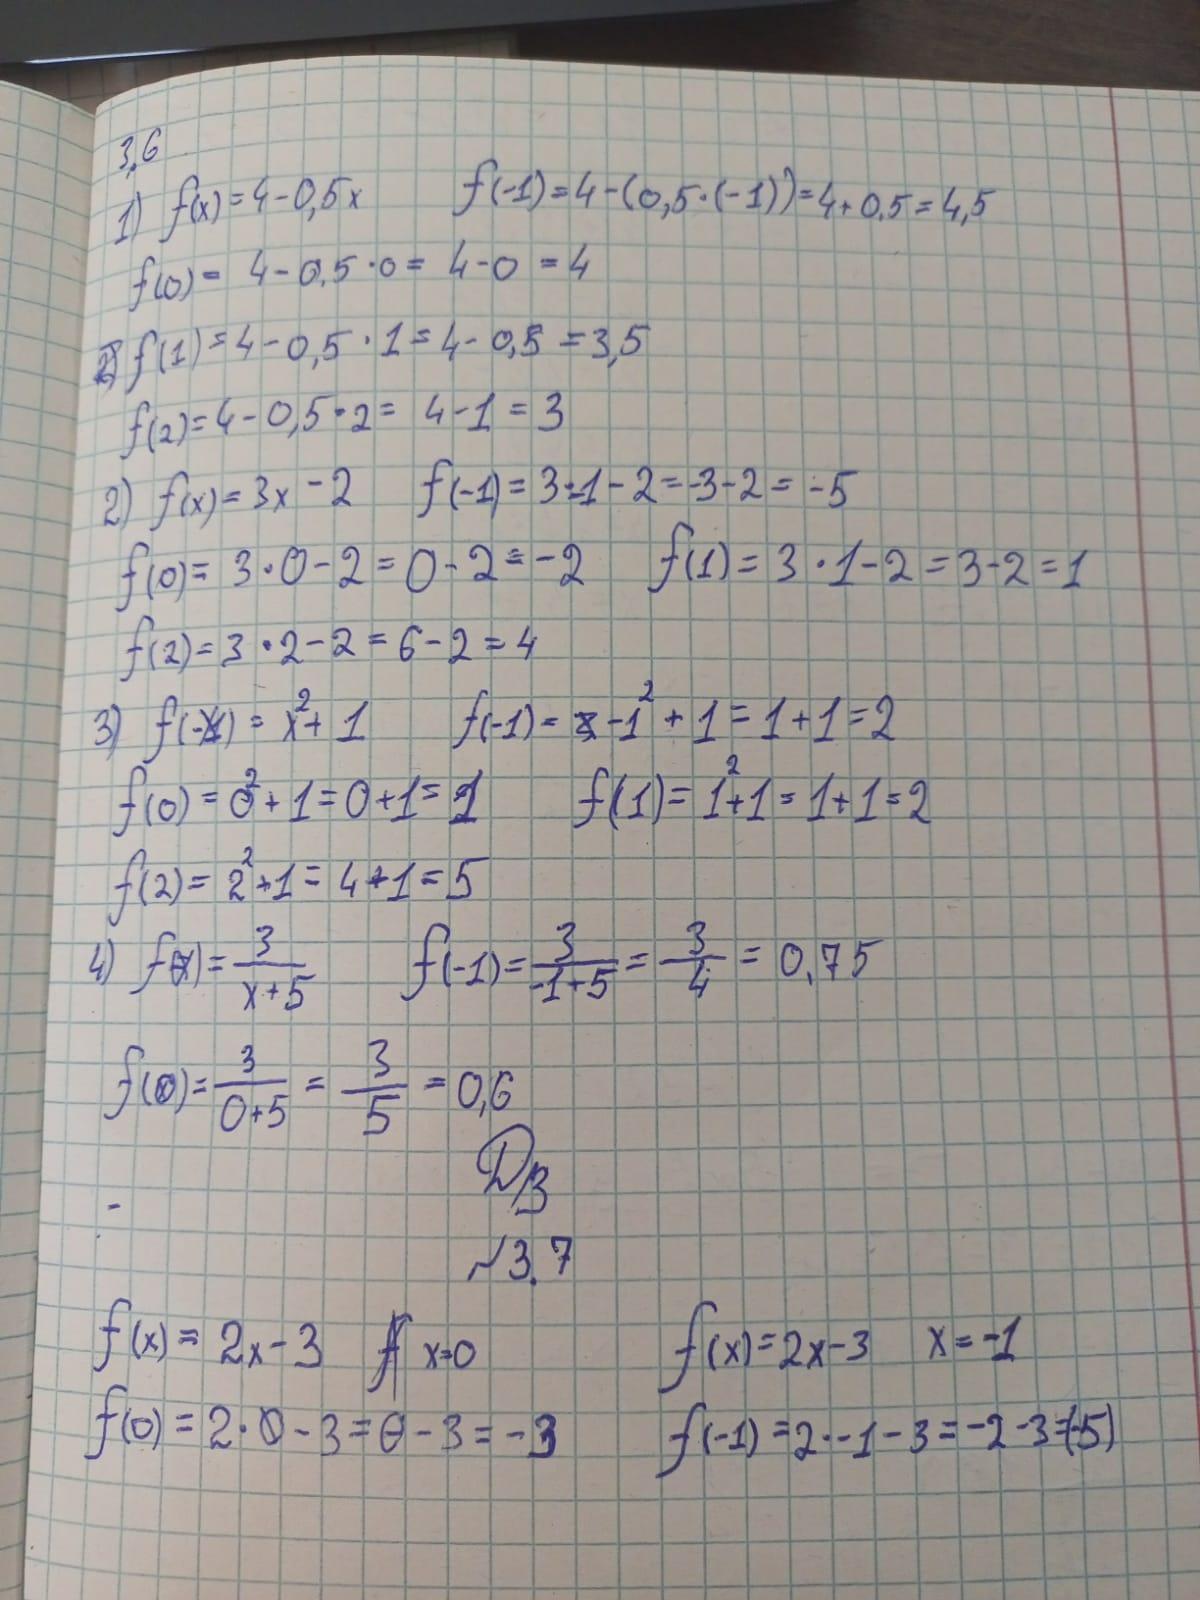 3.6
1) f(x) = 4 - 0,5x f(-1) = 4 - (0,5 · (-1)) = 4 + 0.5 = 4,5
f(0) = 4 - 0,5 · 0 = 4 - 0 = 4
f(1) = 4 - 0,5 · 1 = 4 - 0,5 = 3,5
f(2) = 4 - 0,5 · 2 = 4 - 1 = 3
2) f(x) = 3x - 2 f(-1) = 3·-1 - 2 = -3 - 2 = -5
f(0) = 3 · 0 - 2 = 0 - 2 = -2 f(1) = 3 · 1 - 2 = 3 - 2 = 1
f(2) = 3 · 2 - 2 = 6 - 2 = 4
3) f(x) = x² + 1 f(-1) = -1² + 1 = 1 + 1 = 2
f(0) = 0² + 1 = 0 + 1 = 1 f(1) = 1² + 1 = 1 + 1 = 2
f(2) = 2² + 1 = 4 + 1 = 5
4) f(x) = 3/(x+5) f(-1) = 3/(-1+5) = 3/4 = 0,75
f(0) = 3/(0+5) = 3/5 = 0,6
Д/З
~3.7
f(x) = 2x - 3 x=0 f(x) = 2x - 3 x = -1
f(0) = 2 · 0 - 3 = 0 - 3 = -3 f(-1) = 2 · -1 - 3 = -2 - 3 = (-5)